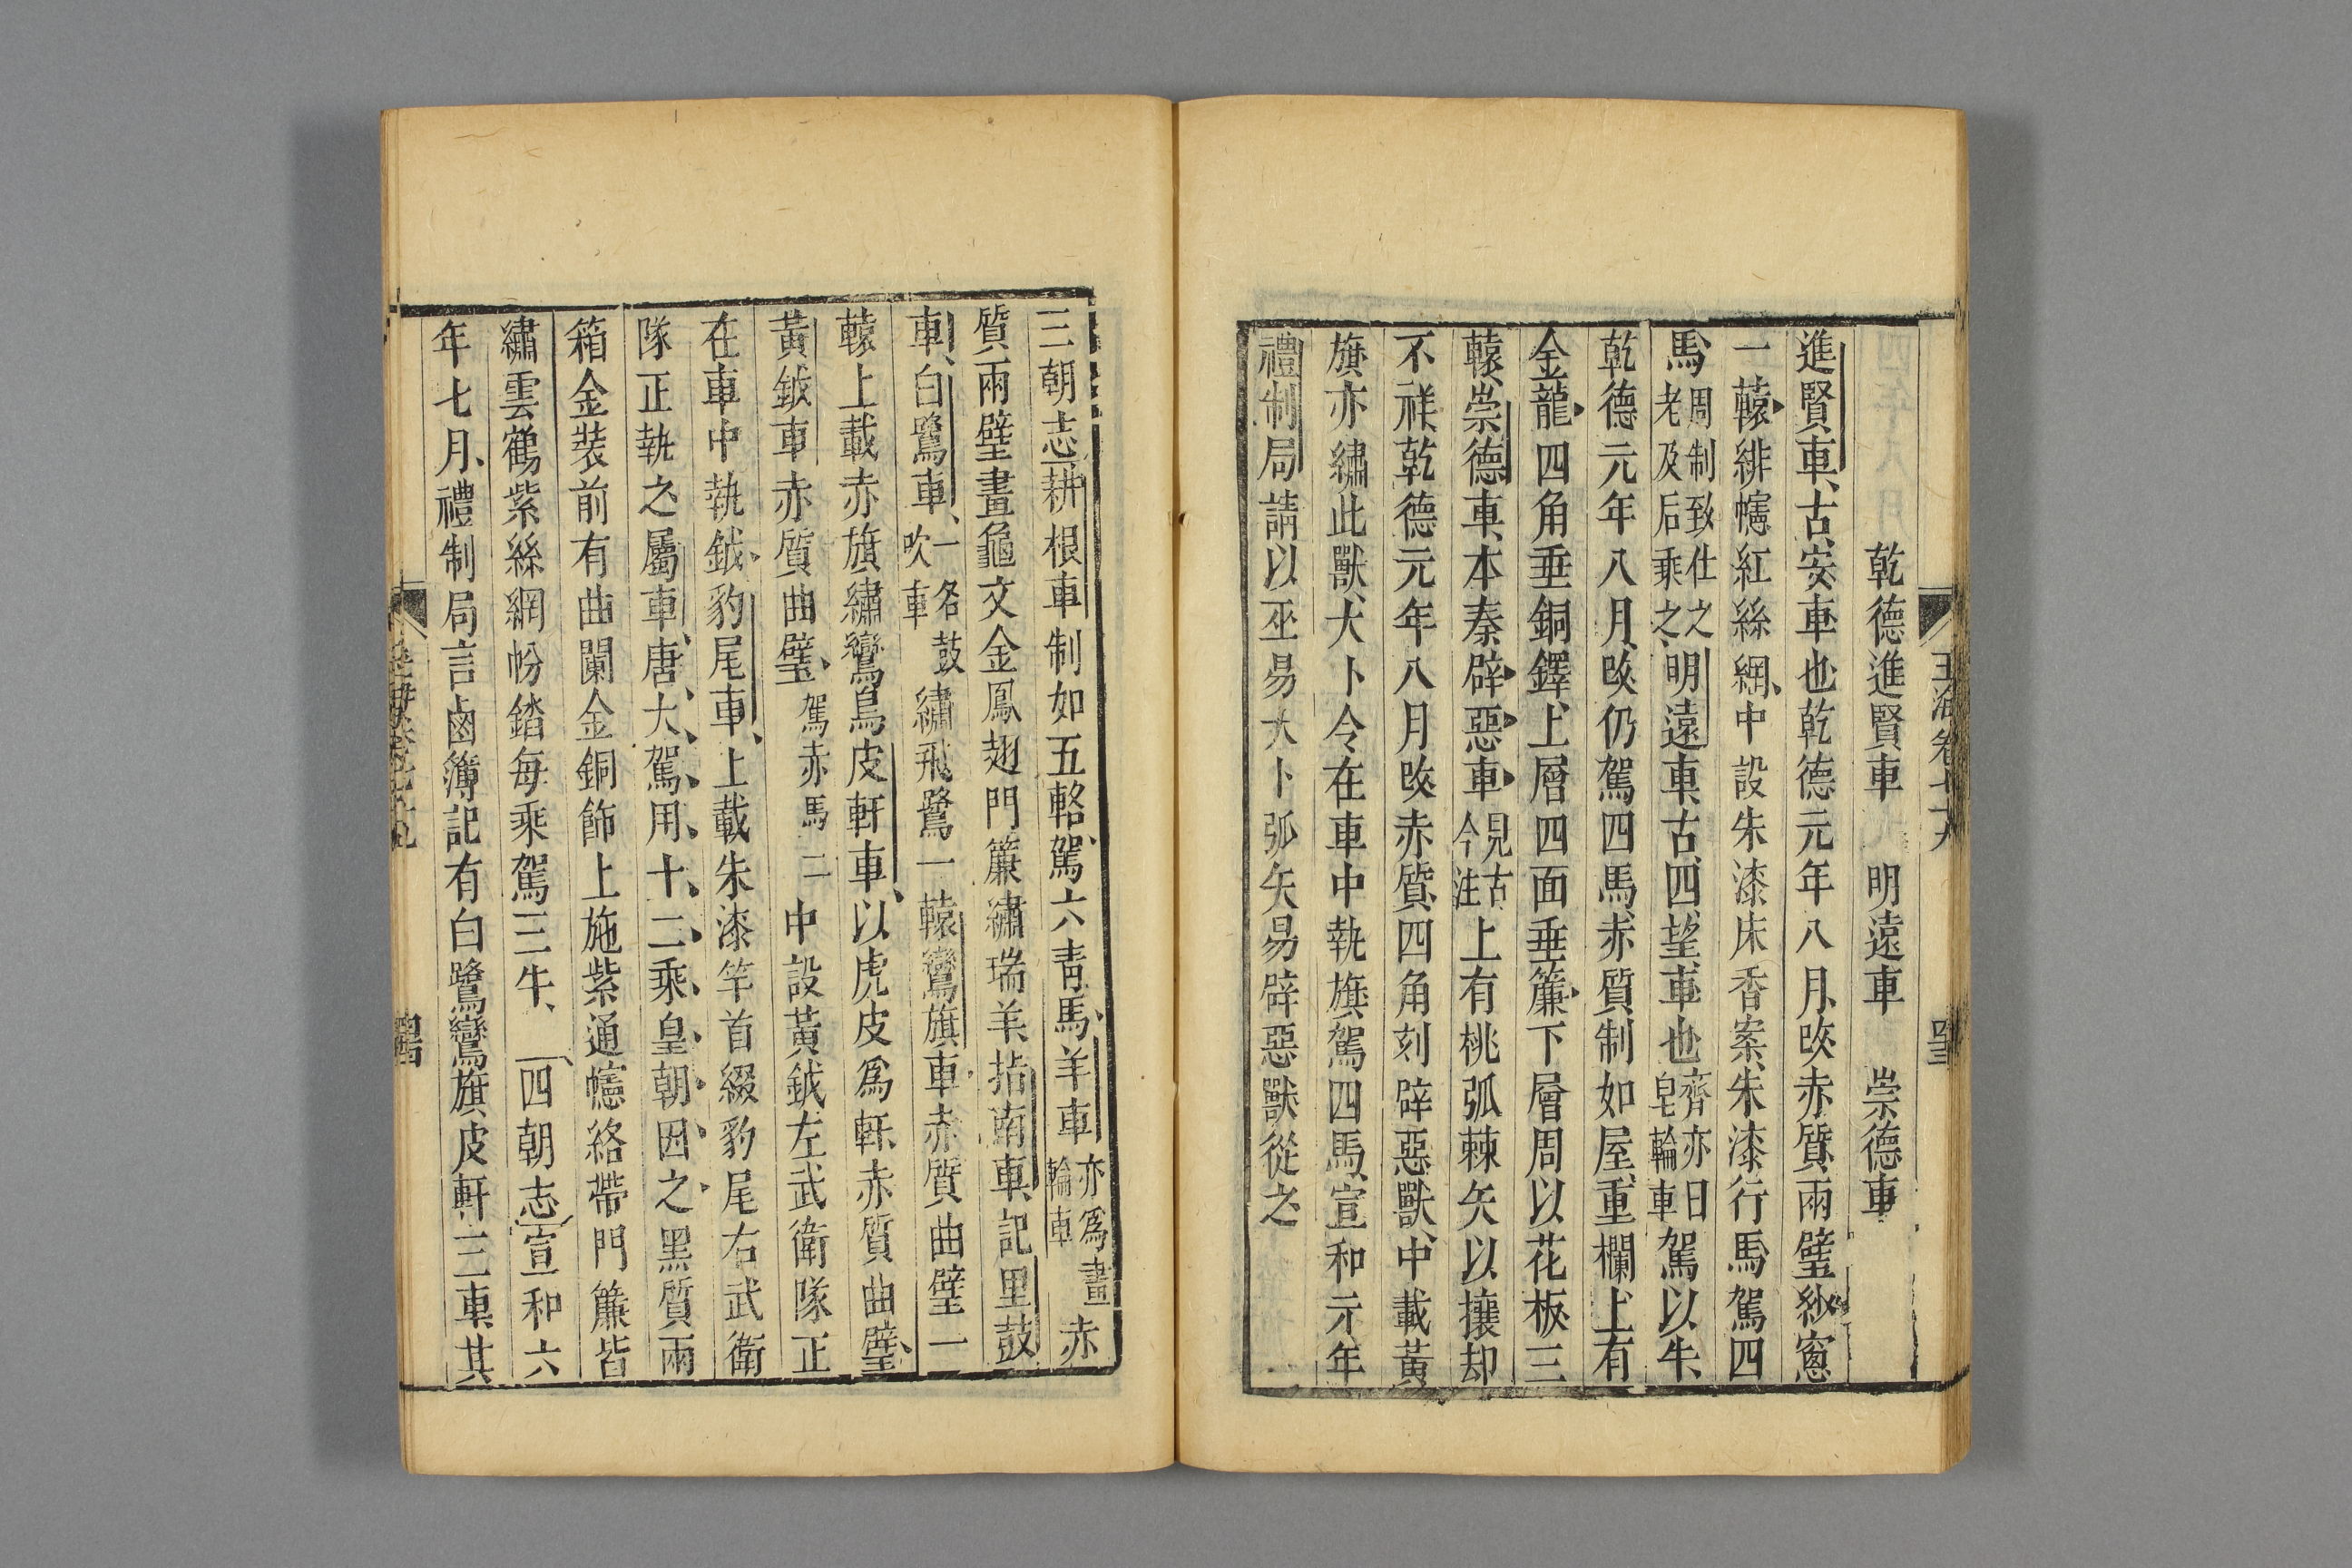 玉海卷七十九
乾德進賢車　明遠車　崇德車
進賢車古安車也乾德元年八月改赤質兩壁紗窻
一轅緋幰紅絲網中設朱漆床香案朱漆行馬駕四
馬周制致仕之老及后乘之明遠車古四望車也齊亦曰皂輪車駕以牛
乾德元年八月改仍駕四馬赤質制如屋重欄上有
金龍四角垂銅鐸上層四面垂簾下層周以花板三
轅崇德車本秦辟惡車見古今注上有桃弧棘矢以攘却
不祥乾德元年八月改赤質四角刻辟惡獸中載黃
旗亦繡此獸犬卜令在車中執旗駕四馬宣和元年
禮制局請以巫易大卜弧矢易辟惡獸從之
三朝志耕根車制如五輅駕六靑馬羊車亦爲畫輪車赤
質兩壁畫龜文金鳳翅門簾繡瑞羊指南車記里鼓
車白鷺車一名鼓吹車繡飛鷺一轅鸞旗車赤質曲壁一
轅上載赤旗繡鸞鳥皮軒車以虎皮爲軒赤質曲壁
黃鉞車赤質曲壁駕赤馬二中設黃鉞左武衛隊正
在車中執鉞豹尾車上載朱漆竿首綴豹尾右武衛
隊正執之屬車唐大駕用十二乘皇朝因之黑質兩
箱金裝前有曲闌金銅飾上施紫通幰絡帶門簾皆
繡雲鶴紫絲網帉錔每乘駕三牛四朝志宣和六
年七月禮制局言鹵簿記有白鷺鸞旗皮軒三車其